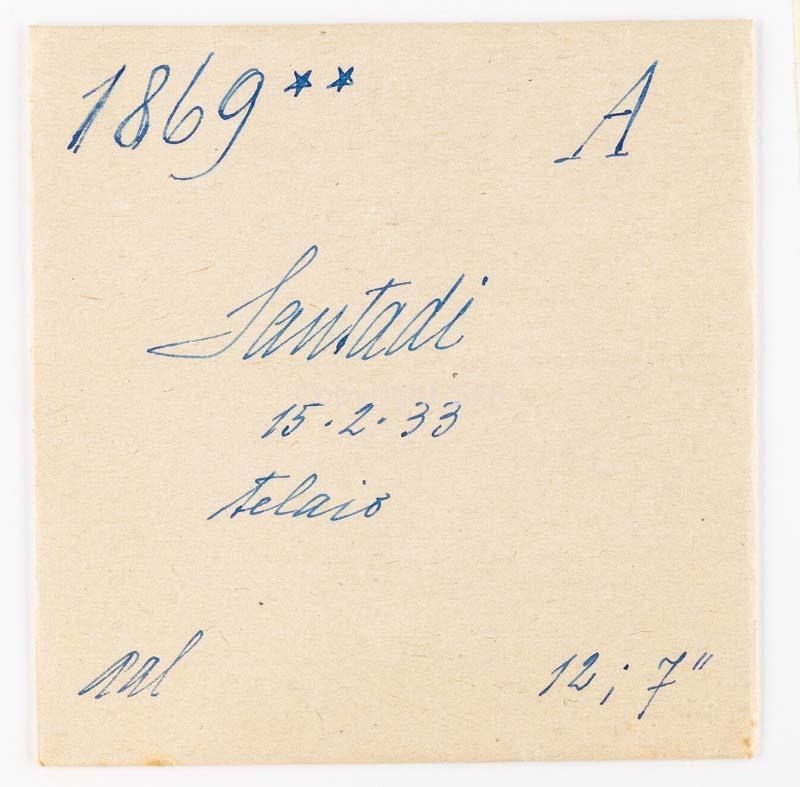 1869** A
Santadi
15.2.33
telaio
12; 7"